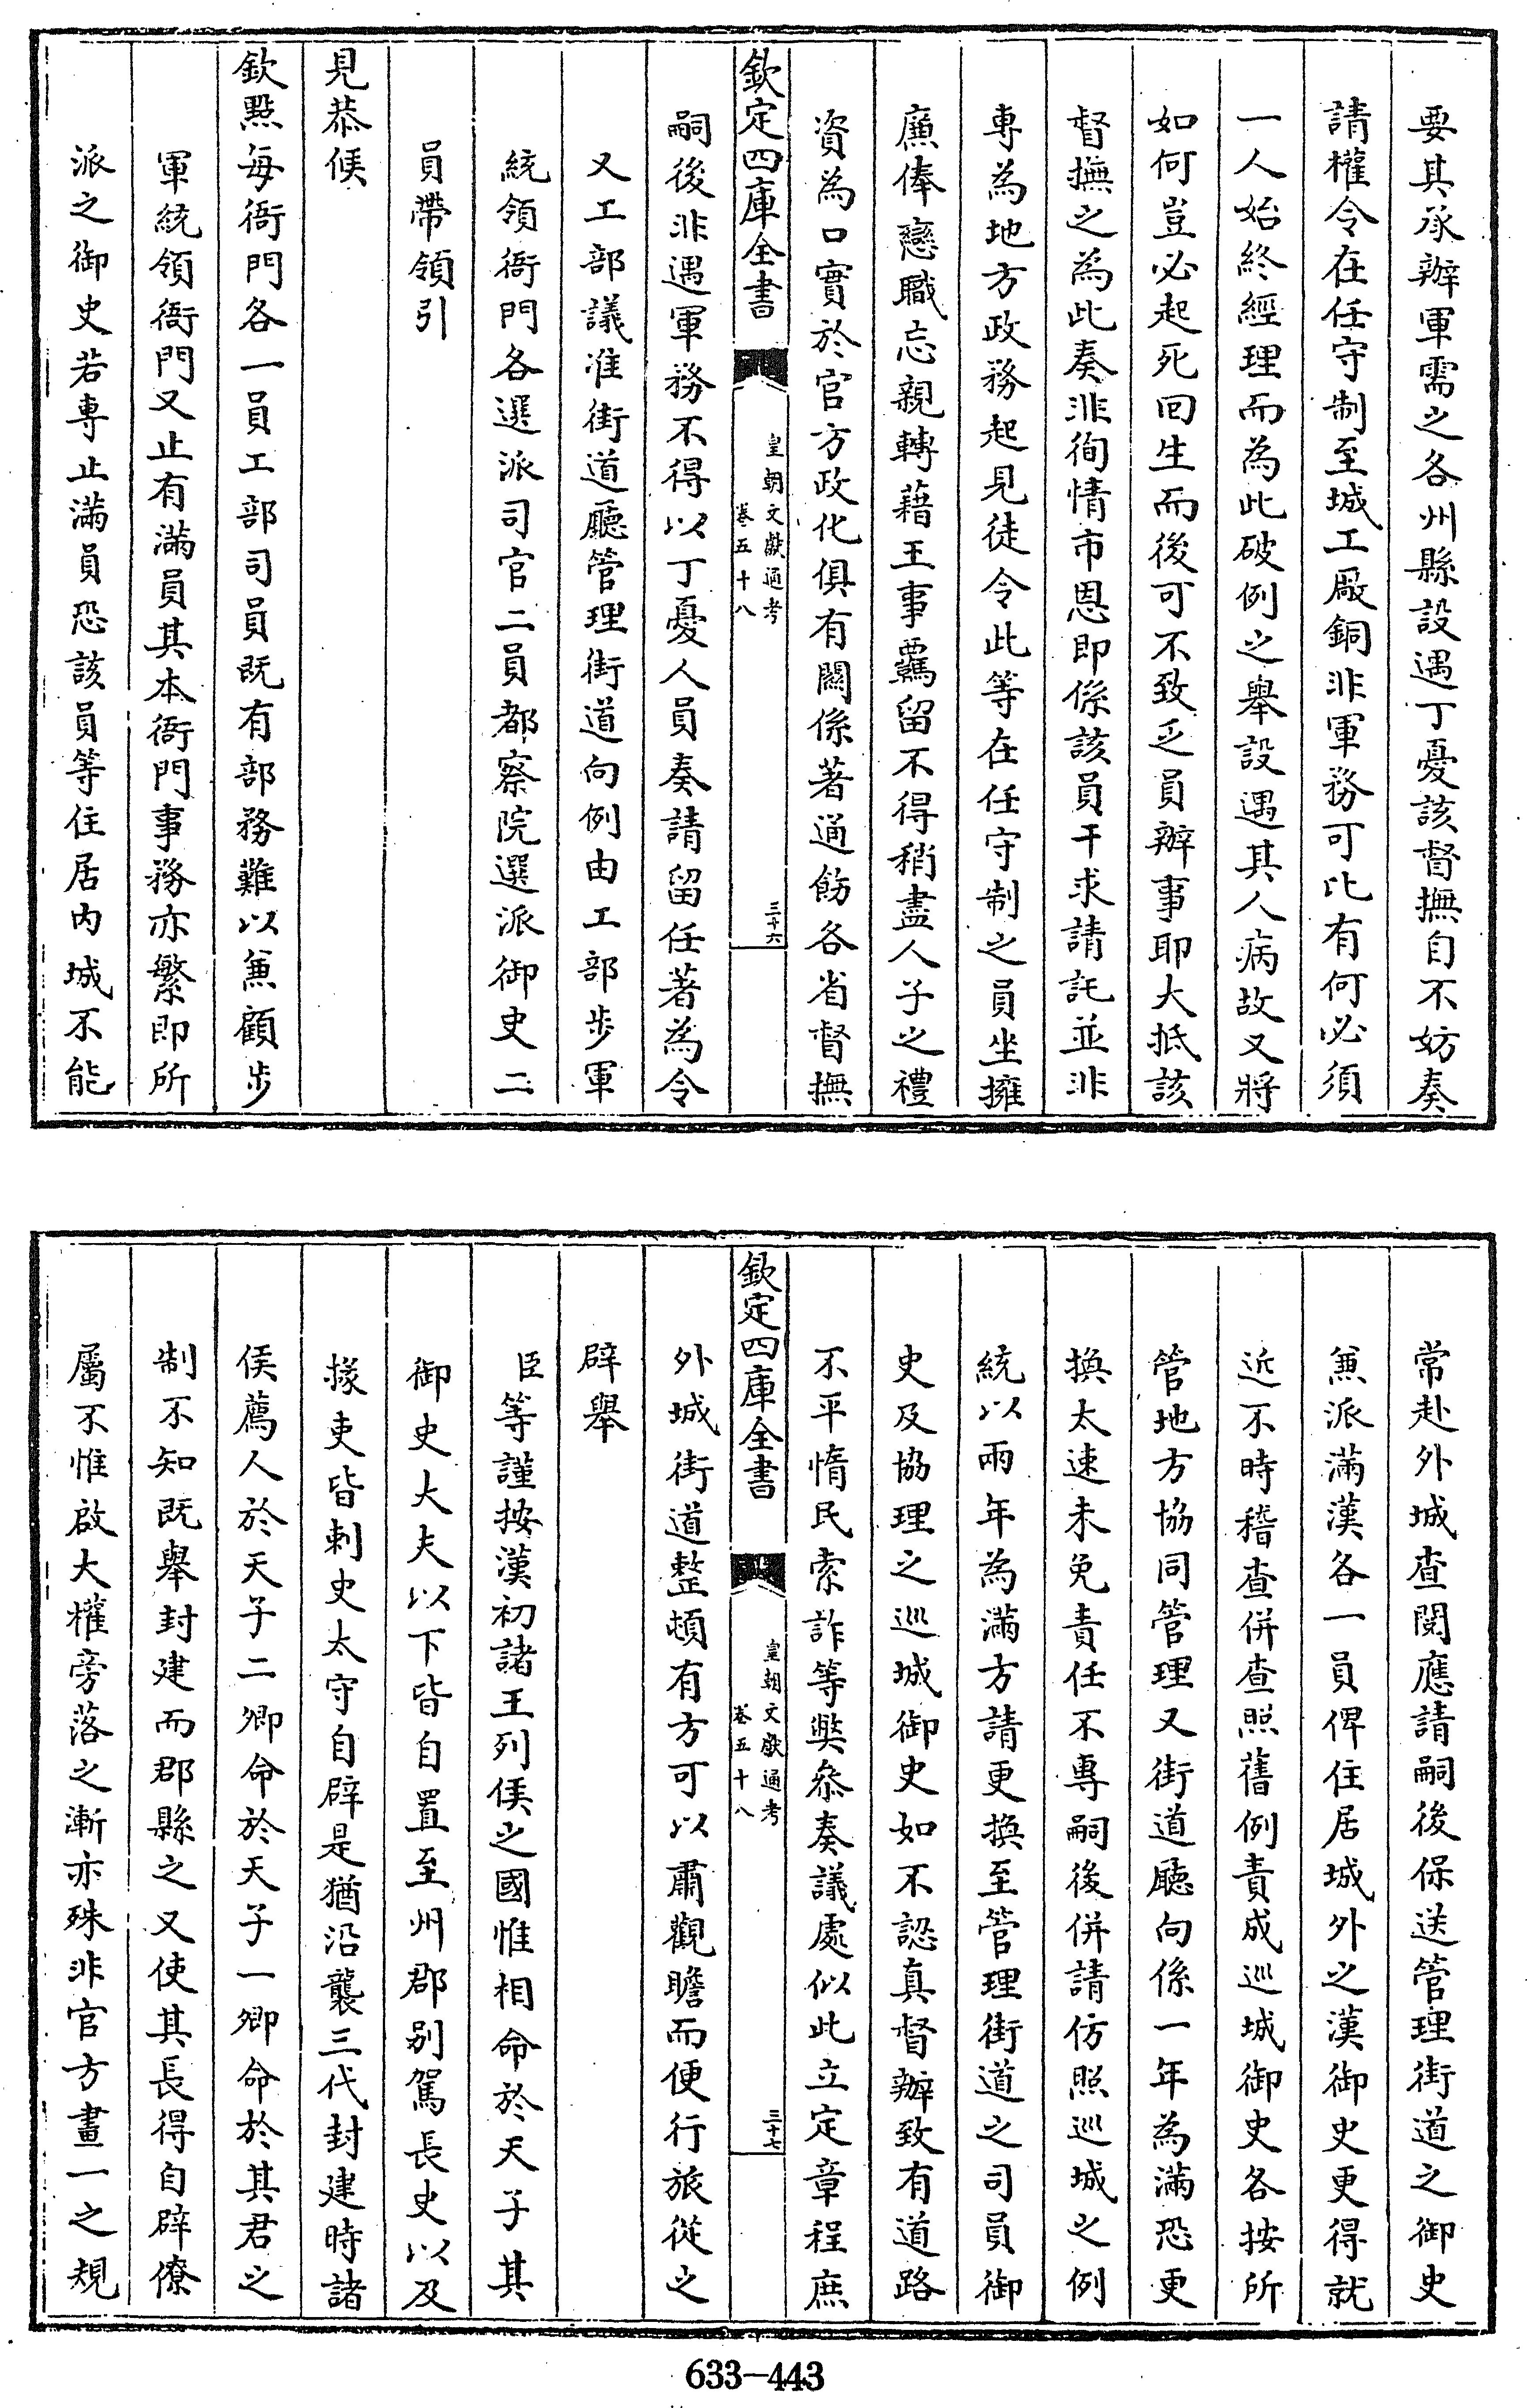 要其承辦軍需之各州縣設遇丁憂該督撫自不妨奏
請權令在任守制至城工廠銅非軍務可比有何必須
一人始終經理而為此破例之舉設遇其人病故又將
如何豈必起死回生而後可不致乏員辦事耶大抵該
督撫之為此奏非徇情市恩即係該員干求請託並非
專為地方政務起見徒令此等在任守制之員坐擁
廉俸戀職忘親轉藉王事羈留不得稍盡人子之禮
資為口實於官方政化俱有關係著通飭各省督撫
欽定四庫全書
皇朝文獻通考
卷五十八
三十六
嗣後非遇軍務不得以丁憂人員奏請留任著為令
又工部議准街道廳管理街道向例由工部步軍
統領衙門各選派司官二員都察院選派御史二
員帶領引
見恭候
欽點每衙門各一員工部司員既有部務難以兼顧步
軍統領衙門又止有滿員其本衙門事務亦繁即所
派之御史若專止滿員恐該員等住居內城不能
常赴外城查閱應請嗣後保送管理街道之御史
兼派滿漢各一員俾住居城外之漢御史更得就
近不時稽查併查照舊例責成巡城御史各按所
管地方協同管理又街道廳向係一年為滿恐更
換太速未免責任不專嗣後併請仿照巡城之例
統以兩年為滿方請更換至管理街道之司員御
史及協理之巡城御史如不認真督辦致有道路
不平惰民索詐等獘叅奏議處似此立定章程庶
欽定四庫全書
皇朝文獻通考
卷五十八
三十七
外城街道整頓有方可以肅觀瞻而便行旅從之
辟舉
臣等謹按漢初諸王列侯之國惟相命於天子其
御史大夫以下皆自置至州郡别駕長史以及
掾吏皆刺史太守自辟是猶沿襲三代封建時諸
侯薦人於天子二卿命於天子一卿命於其君之
制不知既舉封建而郡縣之又使其長得自辟僚
屬不惟啟大權旁落之漸亦殊非官方畫一之規
633-443